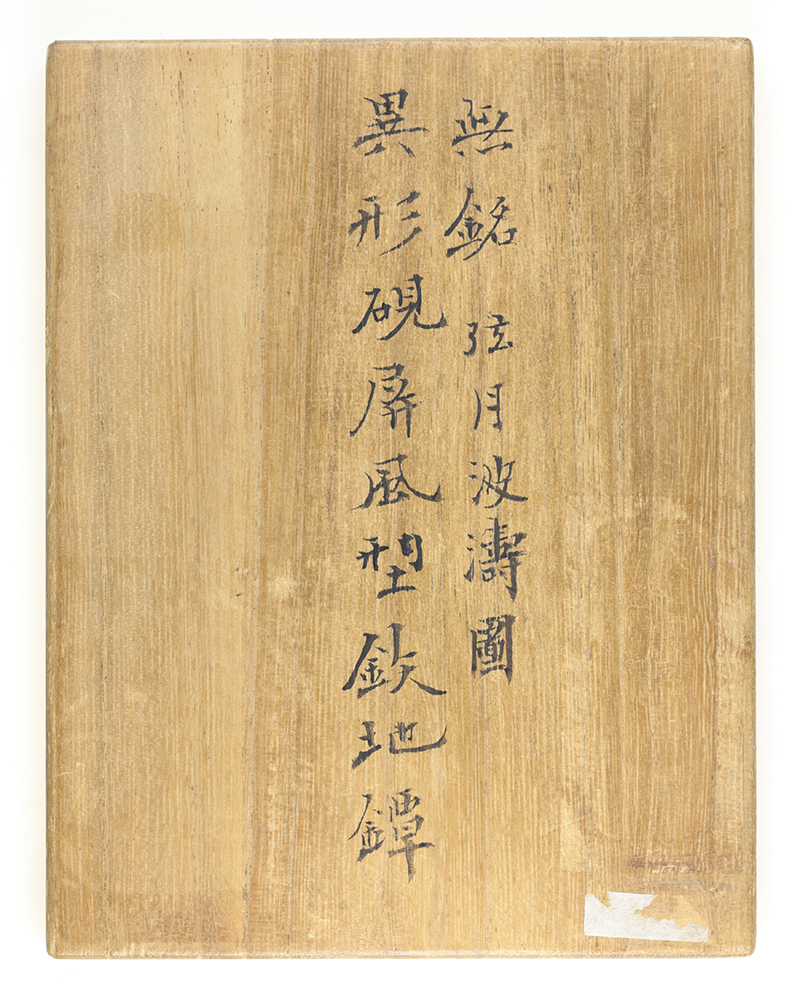 無銘 弦月波濤圖
異形硯屏風型鉄地鐔